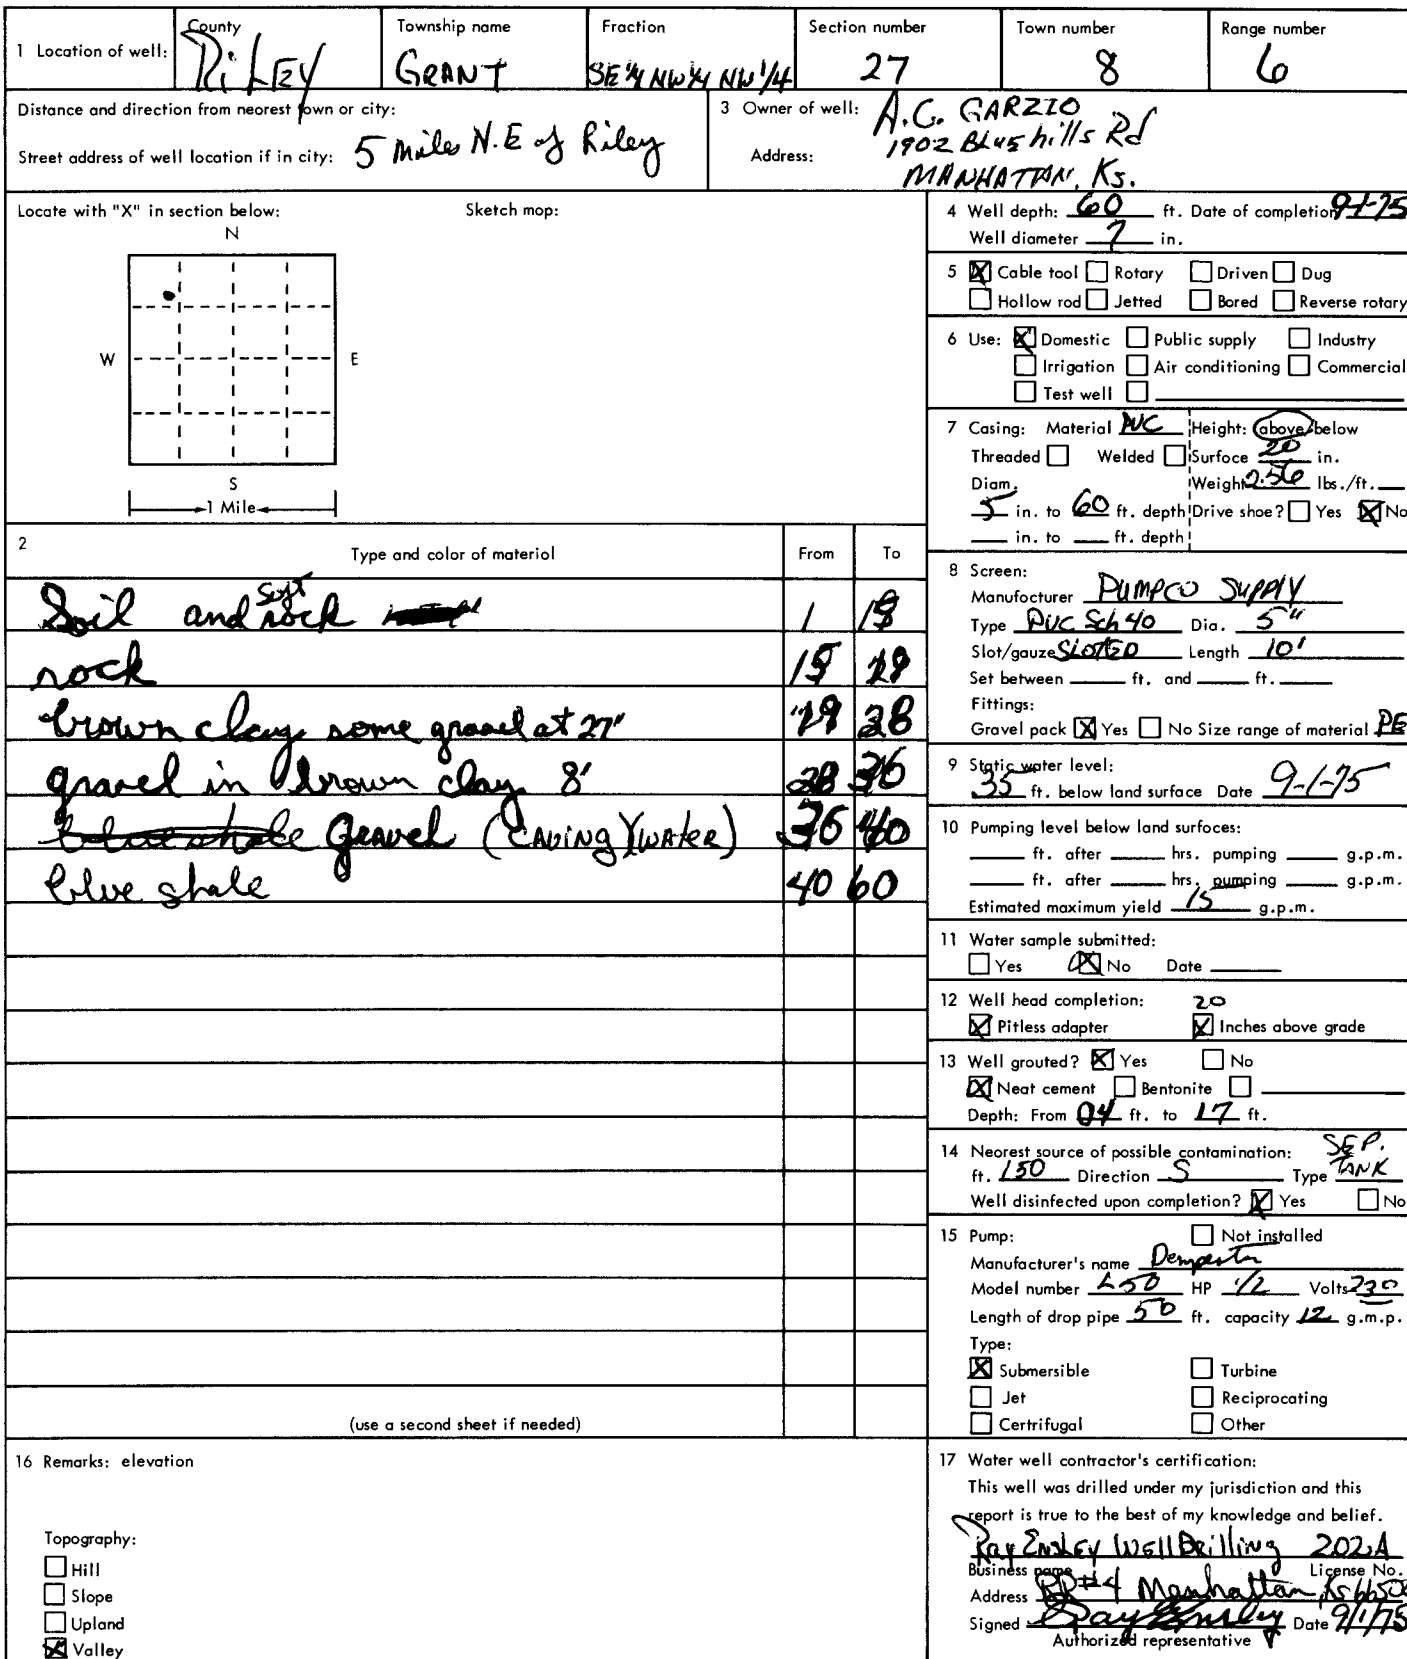 1 Location of well: County RiLEY Township name GRANT Fraction SE 1/4 NW 1/4 NW 1/4 Section number 27 Town number 8 Range number 6
Distance and direction from neorest town or city:
Street address of well location if in city: 5 Miles N.E of Riley
3 Owner of well: A.C. GARZIO
Address: 1902 Blue hills Rd
MANHATTAN, Ks.
Locate with "X" in section below: Sketch mop:
N
W E
S
1 Mile
2 Type and color of materiol From To
Soil and soft rock 1
rock
brown clay some gravel at 27" 28
gravel in brown clay 8' 28 36
Gravel (CAVING)(WATER) 36 40
blue shale 40 60
(use a second sheet if needed)
4 Well depth: 60 ft. Date of completion 9-1-75
Well diameter 7 in.
5 Cable tool Rotary Driven Dug
Hollow rod Jetted Bored Reverse rotary
6 Use: Domestic Public supply Industry
Irrigation Air conditioning Commercial
Test well
7 Casing: Material PVC Height: above/below
Threaded Welded Surfoce 20 in.
Diam. Weight 2.56 lbs./ft.
5 in. to 60 ft. depth Drive shoe? Yes No
in. to ft. depth
8 Screen:
Manufocturer PUMPCO SUPPLY
Type PVC Sch 40 Dia. 5"
Slot/gauze SLOTED Length 10'
Set between ft. and ft.
Fittings:
Gravel pack Yes No Size range of material PE
9 Static water level:
35 ft. below land surface Date 9-1-75
10 Pumping level below land surfoces:
ft. after hrs. pumping g.p.m.
ft. after hrs. pumping g.p.m.
Estimated maximum yield 15 g.p.m.
11 Water sample submitted:
Yes No Date
12 Well head completion: 20
Pitless adapter Inches above grade
13 Well grouted? Yes No
Neat cement Bentonite
Depth: From 04 ft. to 17 ft.
14 Neorest source of possible contamination: SEP.
ft. 150 Direction S Type TANK
Well disinfected upon completion? Yes No
15 Pump: Not installed
Manufacturer's name Dempster
Model number L50 HP 1/2 Volts 230
Length of drop pipe 50 ft. capacity 12 g.m.p.
Type:
Submersible Turbine
Jet Reciprocating
Certrifugal Other
16 Remarks: elevation
Topography:
Hill
Slope
Upland
Valley
17 Water well contractor's certification:
This well was drilled under my jurisdiction and this
report is true to the best of my knowledge and belief.
Ray Ensley Well Drilling 202A
Business name License No.
Address RR#4 Manhattan, Ks 66502
Signed Ray Ensley Date 9/1/75
Authorized representative